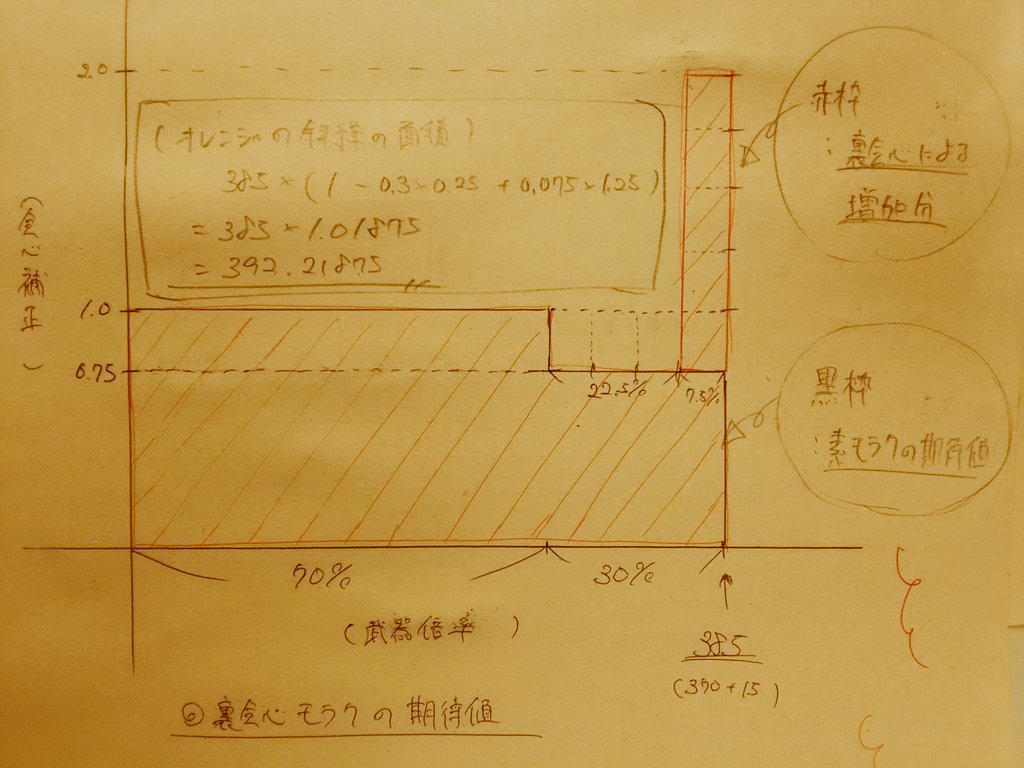 2.0
(オレンジの斜線の面積)
385×(1-0.3×0.25+0.075×1.25)
=385×1.01875
=392.21875
赤枠
:裏会心による
増加分
(会心補正)
1.0
0.75
22.5%
7.5%
黒枠
:素モラクの期待値
70%
30%
(武器倍率)
385
(370+15)
◎裏会心モラクの期待値